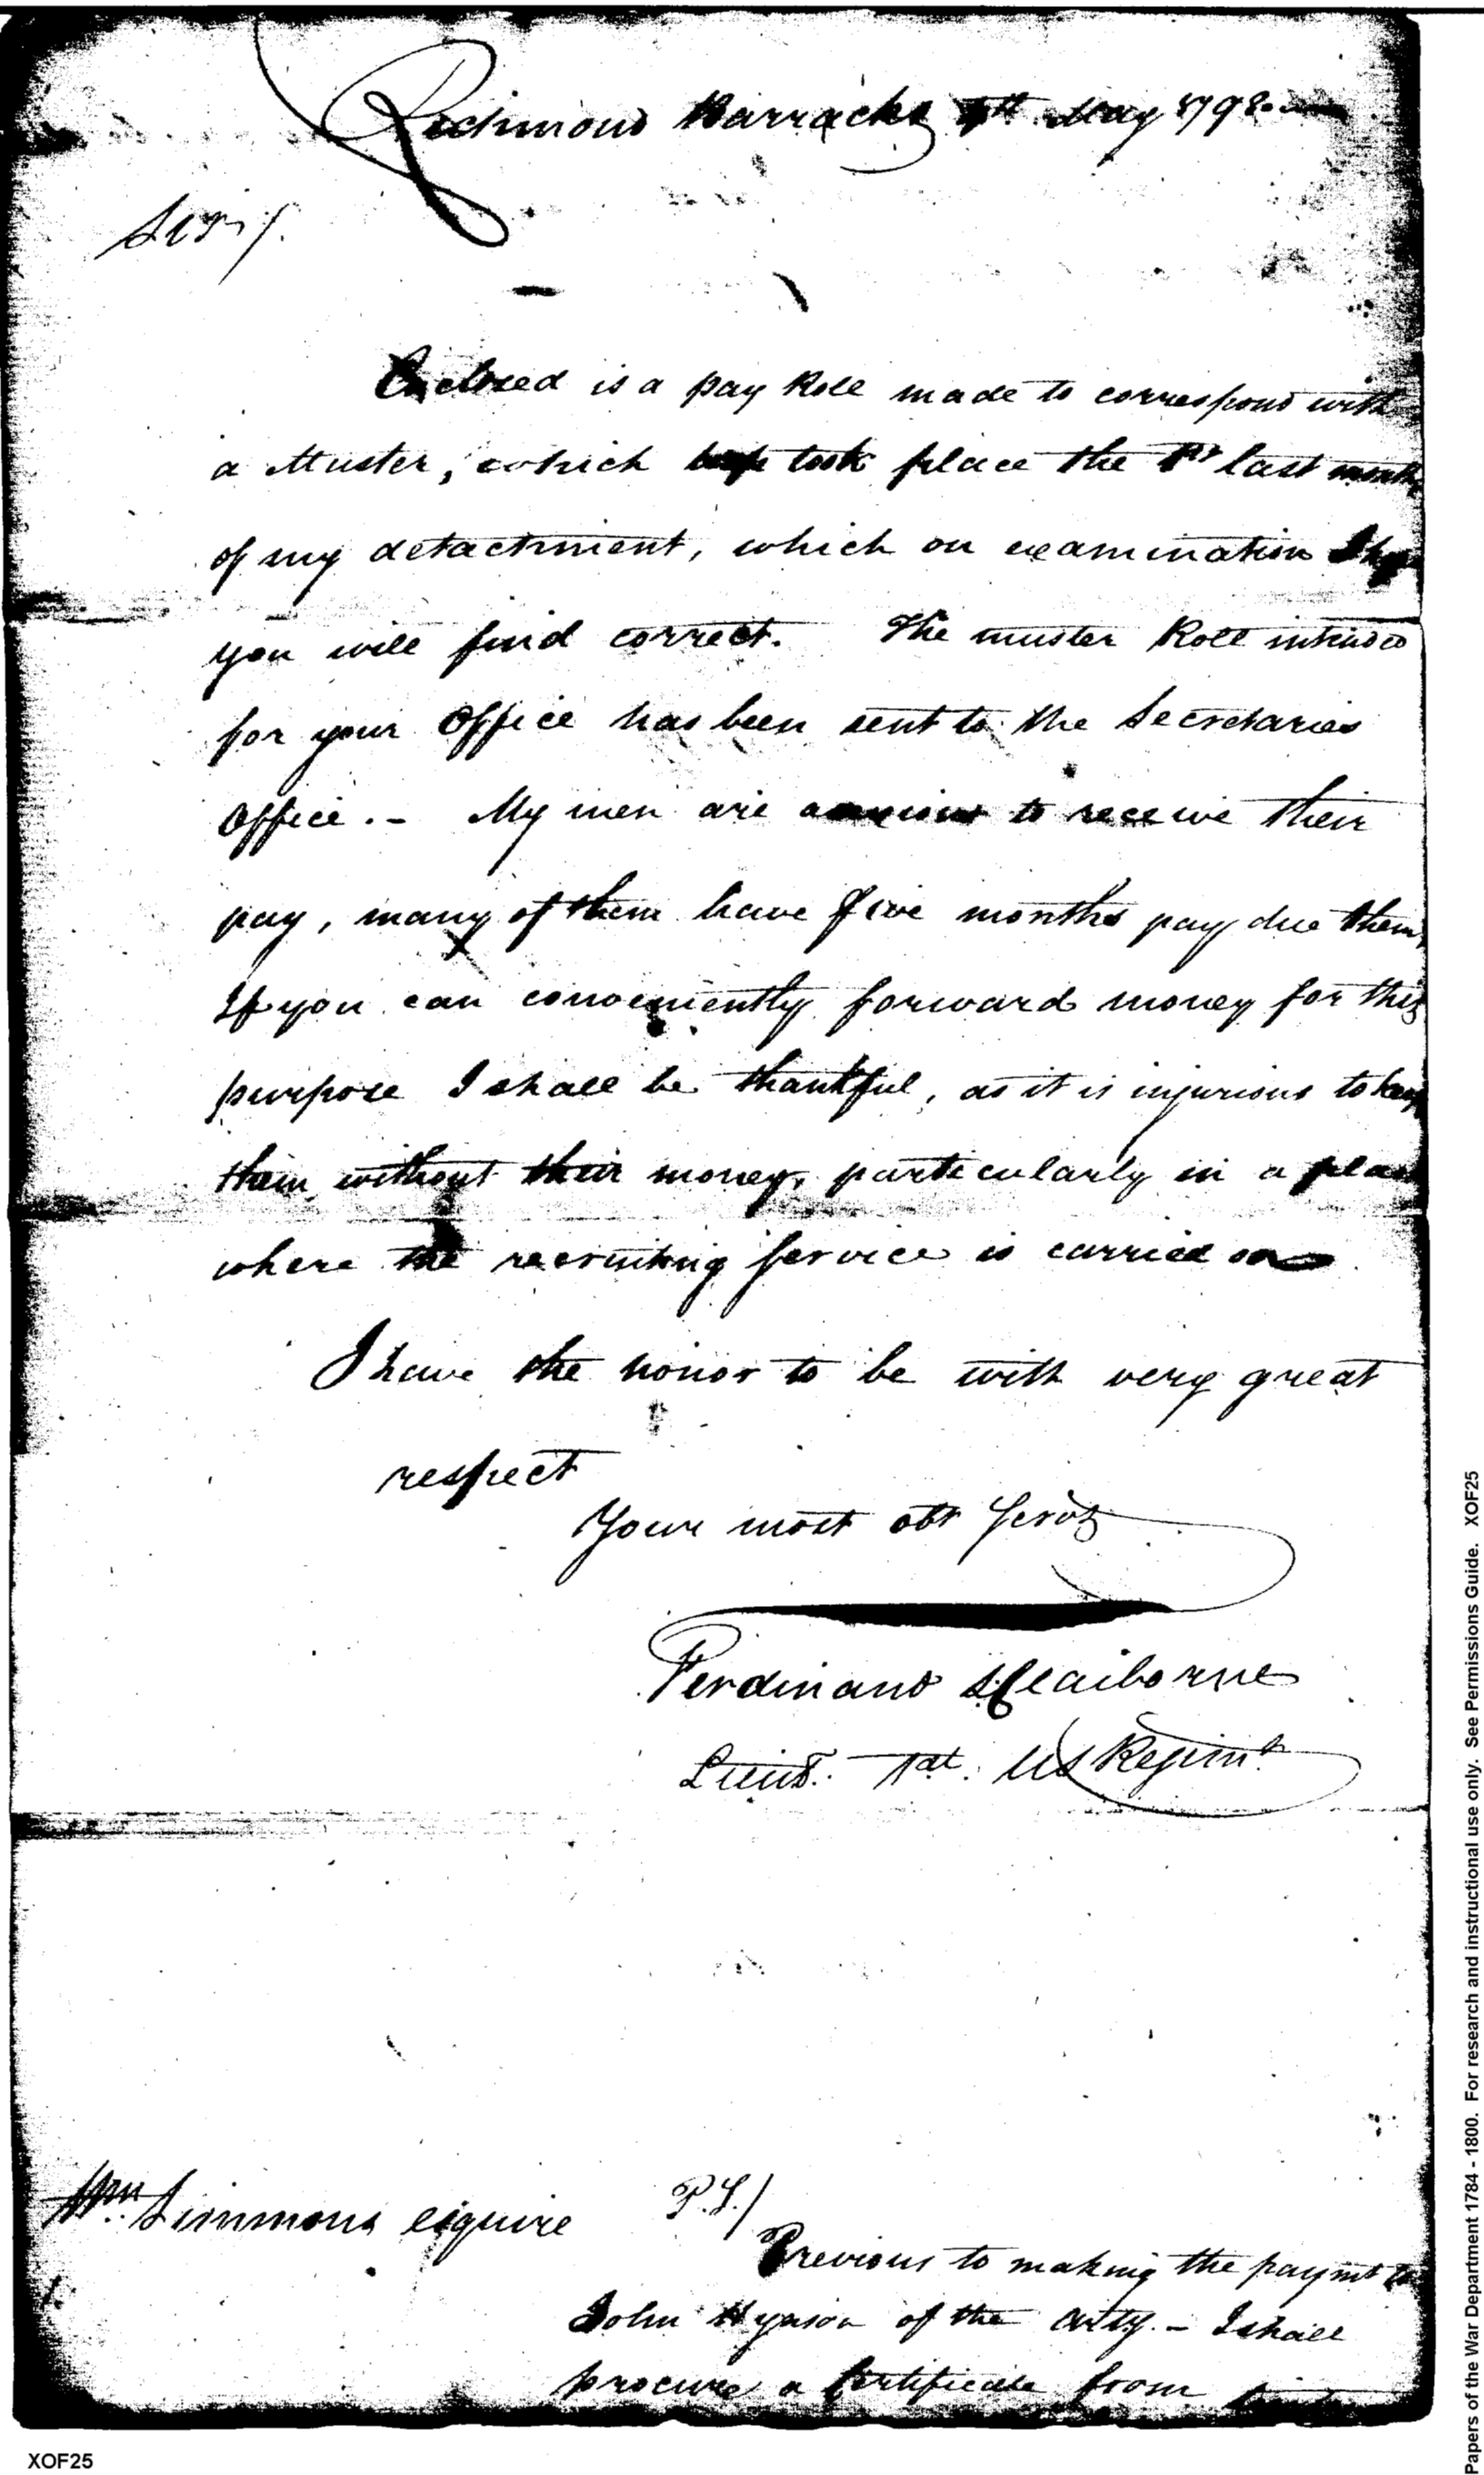 Richmond Barracks May 1798
Sir/.
Enclosed is a pay Roll made to correspond with
a Muster, which took place the 1st last month
of my detachment, which on examination I hope
you will find correct. The muster Roll intended
for your Office has been sent to the Secretaries
Office. - My men are anxious to receive their
pay, many of them have five months pay due them,
If you can conveniently forward money for this
purpose I shall be thankful, as it is injurious to keep
them without their money, particularly in a place
where the recruiting Service is carried on
I have the honor to be with very great
respect
Your most obt Servt
Ferdinand L Claiborne
Lieut. 1st. US Regimt
Wm. Simmons esquire
P.S./
Previous to making the paymt to
John Hynson of the Arty. - I shall
procure a Certificate from
XOF25
Papers of the War Department 1784 - 1800. For research and instructional use only. See Permissions Guide. XOF25